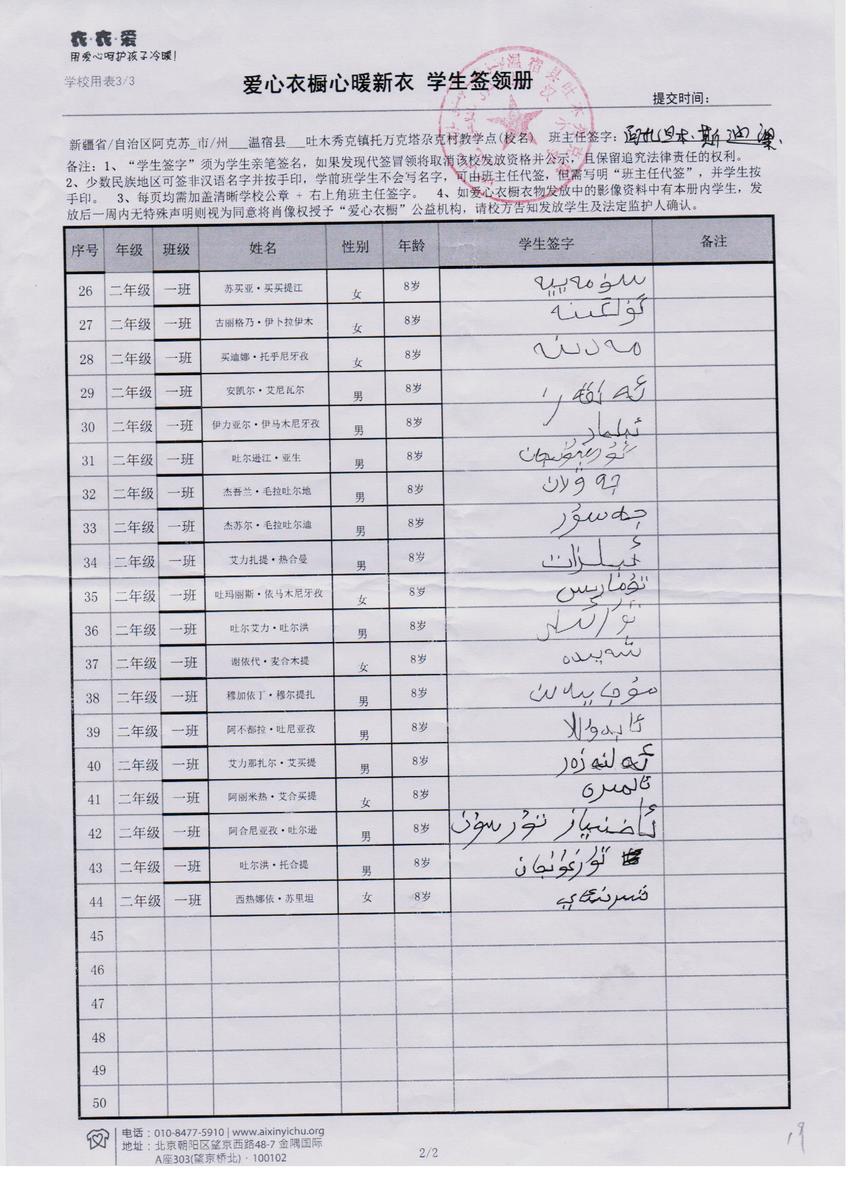 衣·衣·爱
用爱心呵护孩子冷暖!
学校用表3/3
爱心衣橱心暖新衣 学生签领册
提交时间:
新疆省/自治区阿克苏_市/州___温宿县___吐木秀克镇托万克塔尕克村教学点(校名) 班主任签字:
备注: 1、“学生签字”须为学生亲笔签名, 如果发现代签冒领将取消该校发放资格并公示, 且保留追究法律责任的权利。
2、少数民族地区可签非汉语名字并按手印, 学前班学生不会写名字, 可由班主任代签, 但需写明“班主任代签”, 并学生按
手印。 3、每页均需加盖清晰学校公章 + 右上角班主任签字。 4、如爱心衣橱衣物发放中的影像资料中有本册内学生, 发
放后一周内无特殊声明则视为同意将肖像权授予“爱心衣橱”公益机构, 请校方告知发放学生及法定监护人确认。
序号 年级 班级 姓名 性别 年龄 学生签字 备注
26 二年级 一班 苏买亚·买买提江 女 8岁 سۈمەييە
27 二年级 一班 古丽格乃·伊卜拉伊木 女 8岁 گۈلگىنە
28 二年级 一班 买迪娜·托乎尼牙孜 女 8岁 مەدىنە
29 二年级 一班 安凯尔·艾尼瓦尔 男 8岁
30 二年级 一班 伊力亚尔·伊马木尼牙孜 男 8岁
31 二年级 一班 吐尔逊江·亚生 男 8岁
32 二年级 一班 杰吾兰·毛拉吐尔地 男 8岁 جەۋلان
33 二年级 一班 杰苏尔·毛拉吐尔迪 男 8岁 جەسۇر
34 二年级 一班 艾力扎提·热合曼 男 8岁 ئېلىزات
35 二年级 一班 吐玛丽斯·依马木尼牙孜 女 8岁 تۇمارىس
36 二年级 一班 吐尔艾力·吐尔洪 男 8岁
37 二年级 一班 谢依代·麦合木提 女 8岁 شەيىدە
38 二年级 一班 穆加依丁·穆尔提扎 男 8岁
39 二年级 一班 阿不都拉·吐尼亚孜 男 8岁 ئابدۇللا
40 二年级 一班 艾力那扎尔·艾买提 男 8岁 ئەلنەزەر
41 二年级 一班 阿丽米热·艾合买提 女 8岁 ئالمىرە
42 二年级 一班 阿合尼亚孜·吐尔逊 男 8岁 ئاخنىياز تۇرسۇن
43 二年级 一班 吐尔洪·托合提 男 8岁 تۇرغۇنجان
44 二年级 一班 西热娜依·苏里坦 女 8岁
45
46
47
48
49
50
电话: 010-8477-5910 | www.aixinyichu.org
地址: 北京朝阳区望京西路48-7 金隅国际
A座303(望京桥北) · 100102
2/2